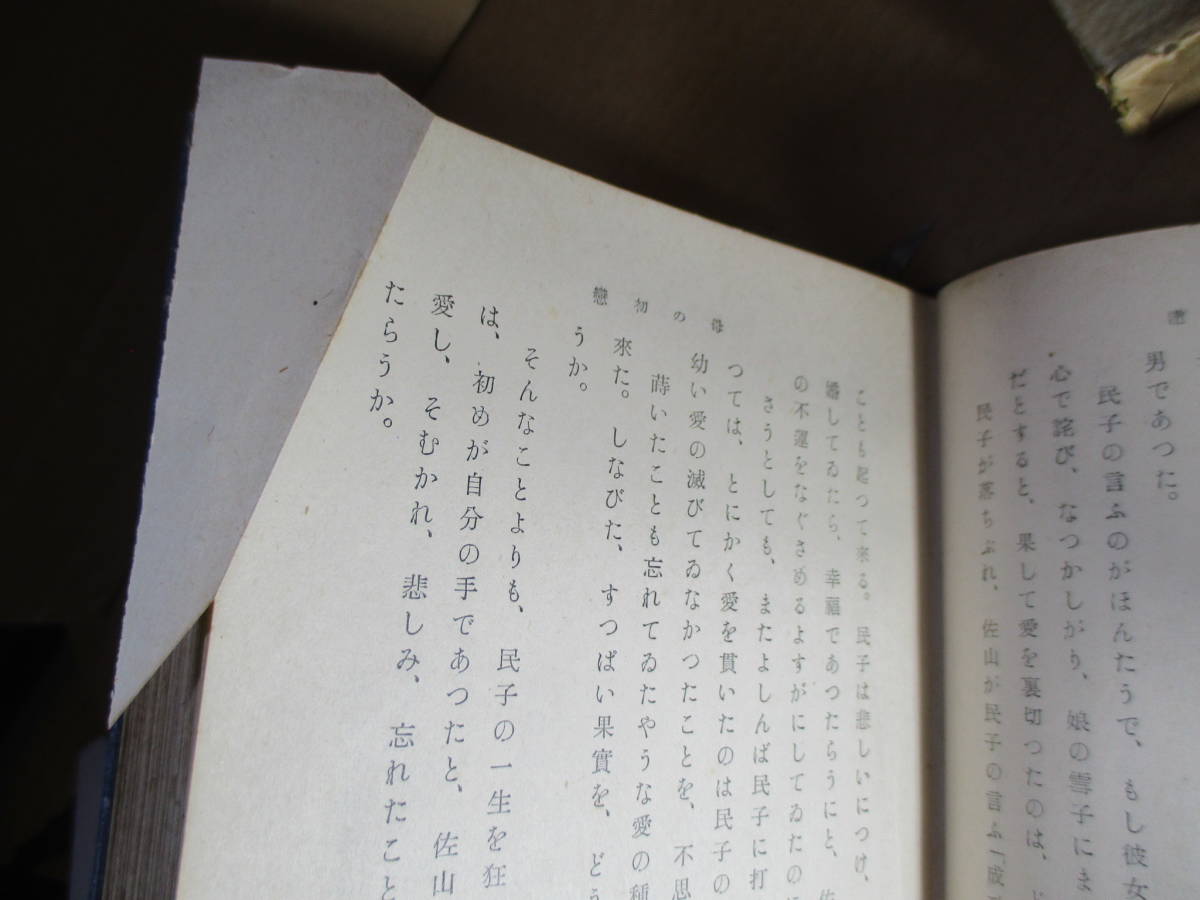 男であつた。
民子の言ふのがほんたうで、もし彼女
心で詫び、なつかしがり、娘の雪子にま
だとすると、果して愛を裏切つたのは、
民子が落ちぶれ、佐山が民子の言ふ「成
母の初戀
ことも起つて來る。民子は悲しいにつけ、
婚してゐたら、幸福であつたらうにと、佐
の不運をなぐさめるよすがにしてゐたの
さうとしても、またよしんば民子に打
つては、とにかく愛を貫いたのは民子の
幼い愛の滅びてゐなかつたことを、不思
蒔いたことも忘れてゐたやうな愛の種
來た。しなびた、すつぱい果實を、どう
うか。
そんなことよりも、民子の一生を狂
は、初めが自分の手であつたと、佐山
愛し、そむかれ、悲しみ、忘れたこと
たらうか。